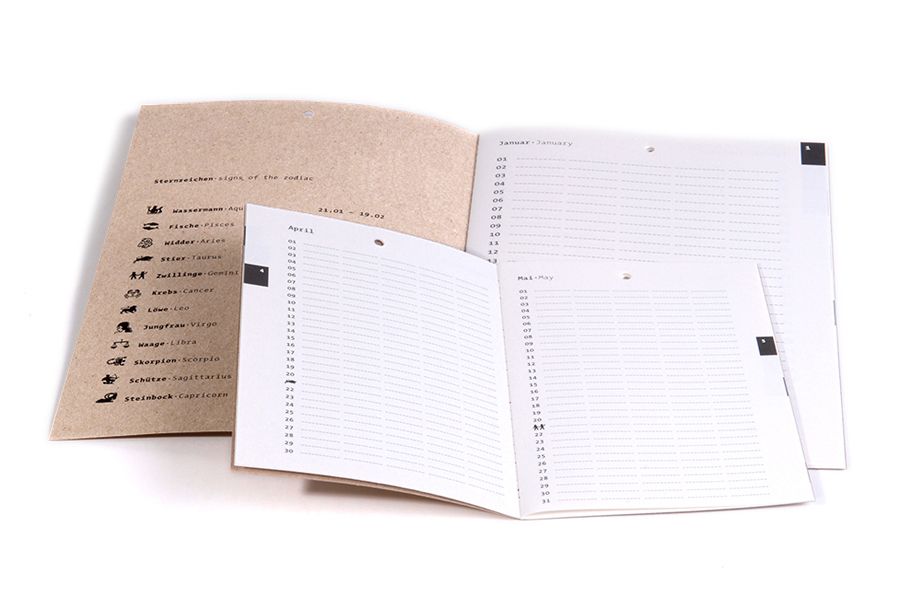 Sternzeichen·signs of the zodiac
Wassermann·Aqu
21.01 – 19.02
Fische·Pisces
Widder·Aries
Stier·Taurus
Zwillinge·Gemini
Krebs·Cancer
Löwe·Leo
Jungfrau·Virgo
Waage·Libra
Skorpion·Scorpio
Schütze·Sagittarius
Steinbock·Capricorn
Januar·January
1
01
02
03
04
05
06
07
08
09
10
11
12
13
April
4
01
02
03
04
05
06
07
08
09
10
11
12
13
14
15
16
17
18
19
20
22
23
24
25
26
27
28
29
30
Mai·May
5
01
02
03
04
05
06
07
08
09
10
11
12
13
14
15
16
17
18
19
20
22
23
24
25
26
27
28
29
30
31